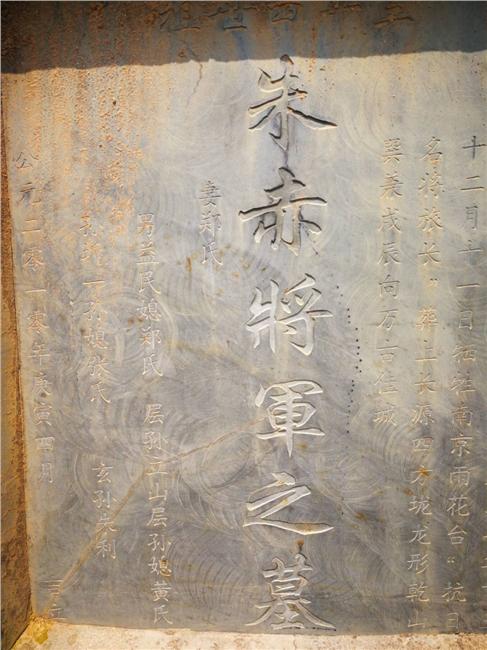 十二月十一日牺牲南京雨花台“抗日
名将旅长”葬上长源四方垅龙形乾山
巽兼戌辰向万古佳城
朱赤將軍之墓
妻郑氏
男益民媳郑氏 层孙立山层孙媳黄氏
孙媳张氏 玄孙朱利
公元二零一零年庚寅四月 立